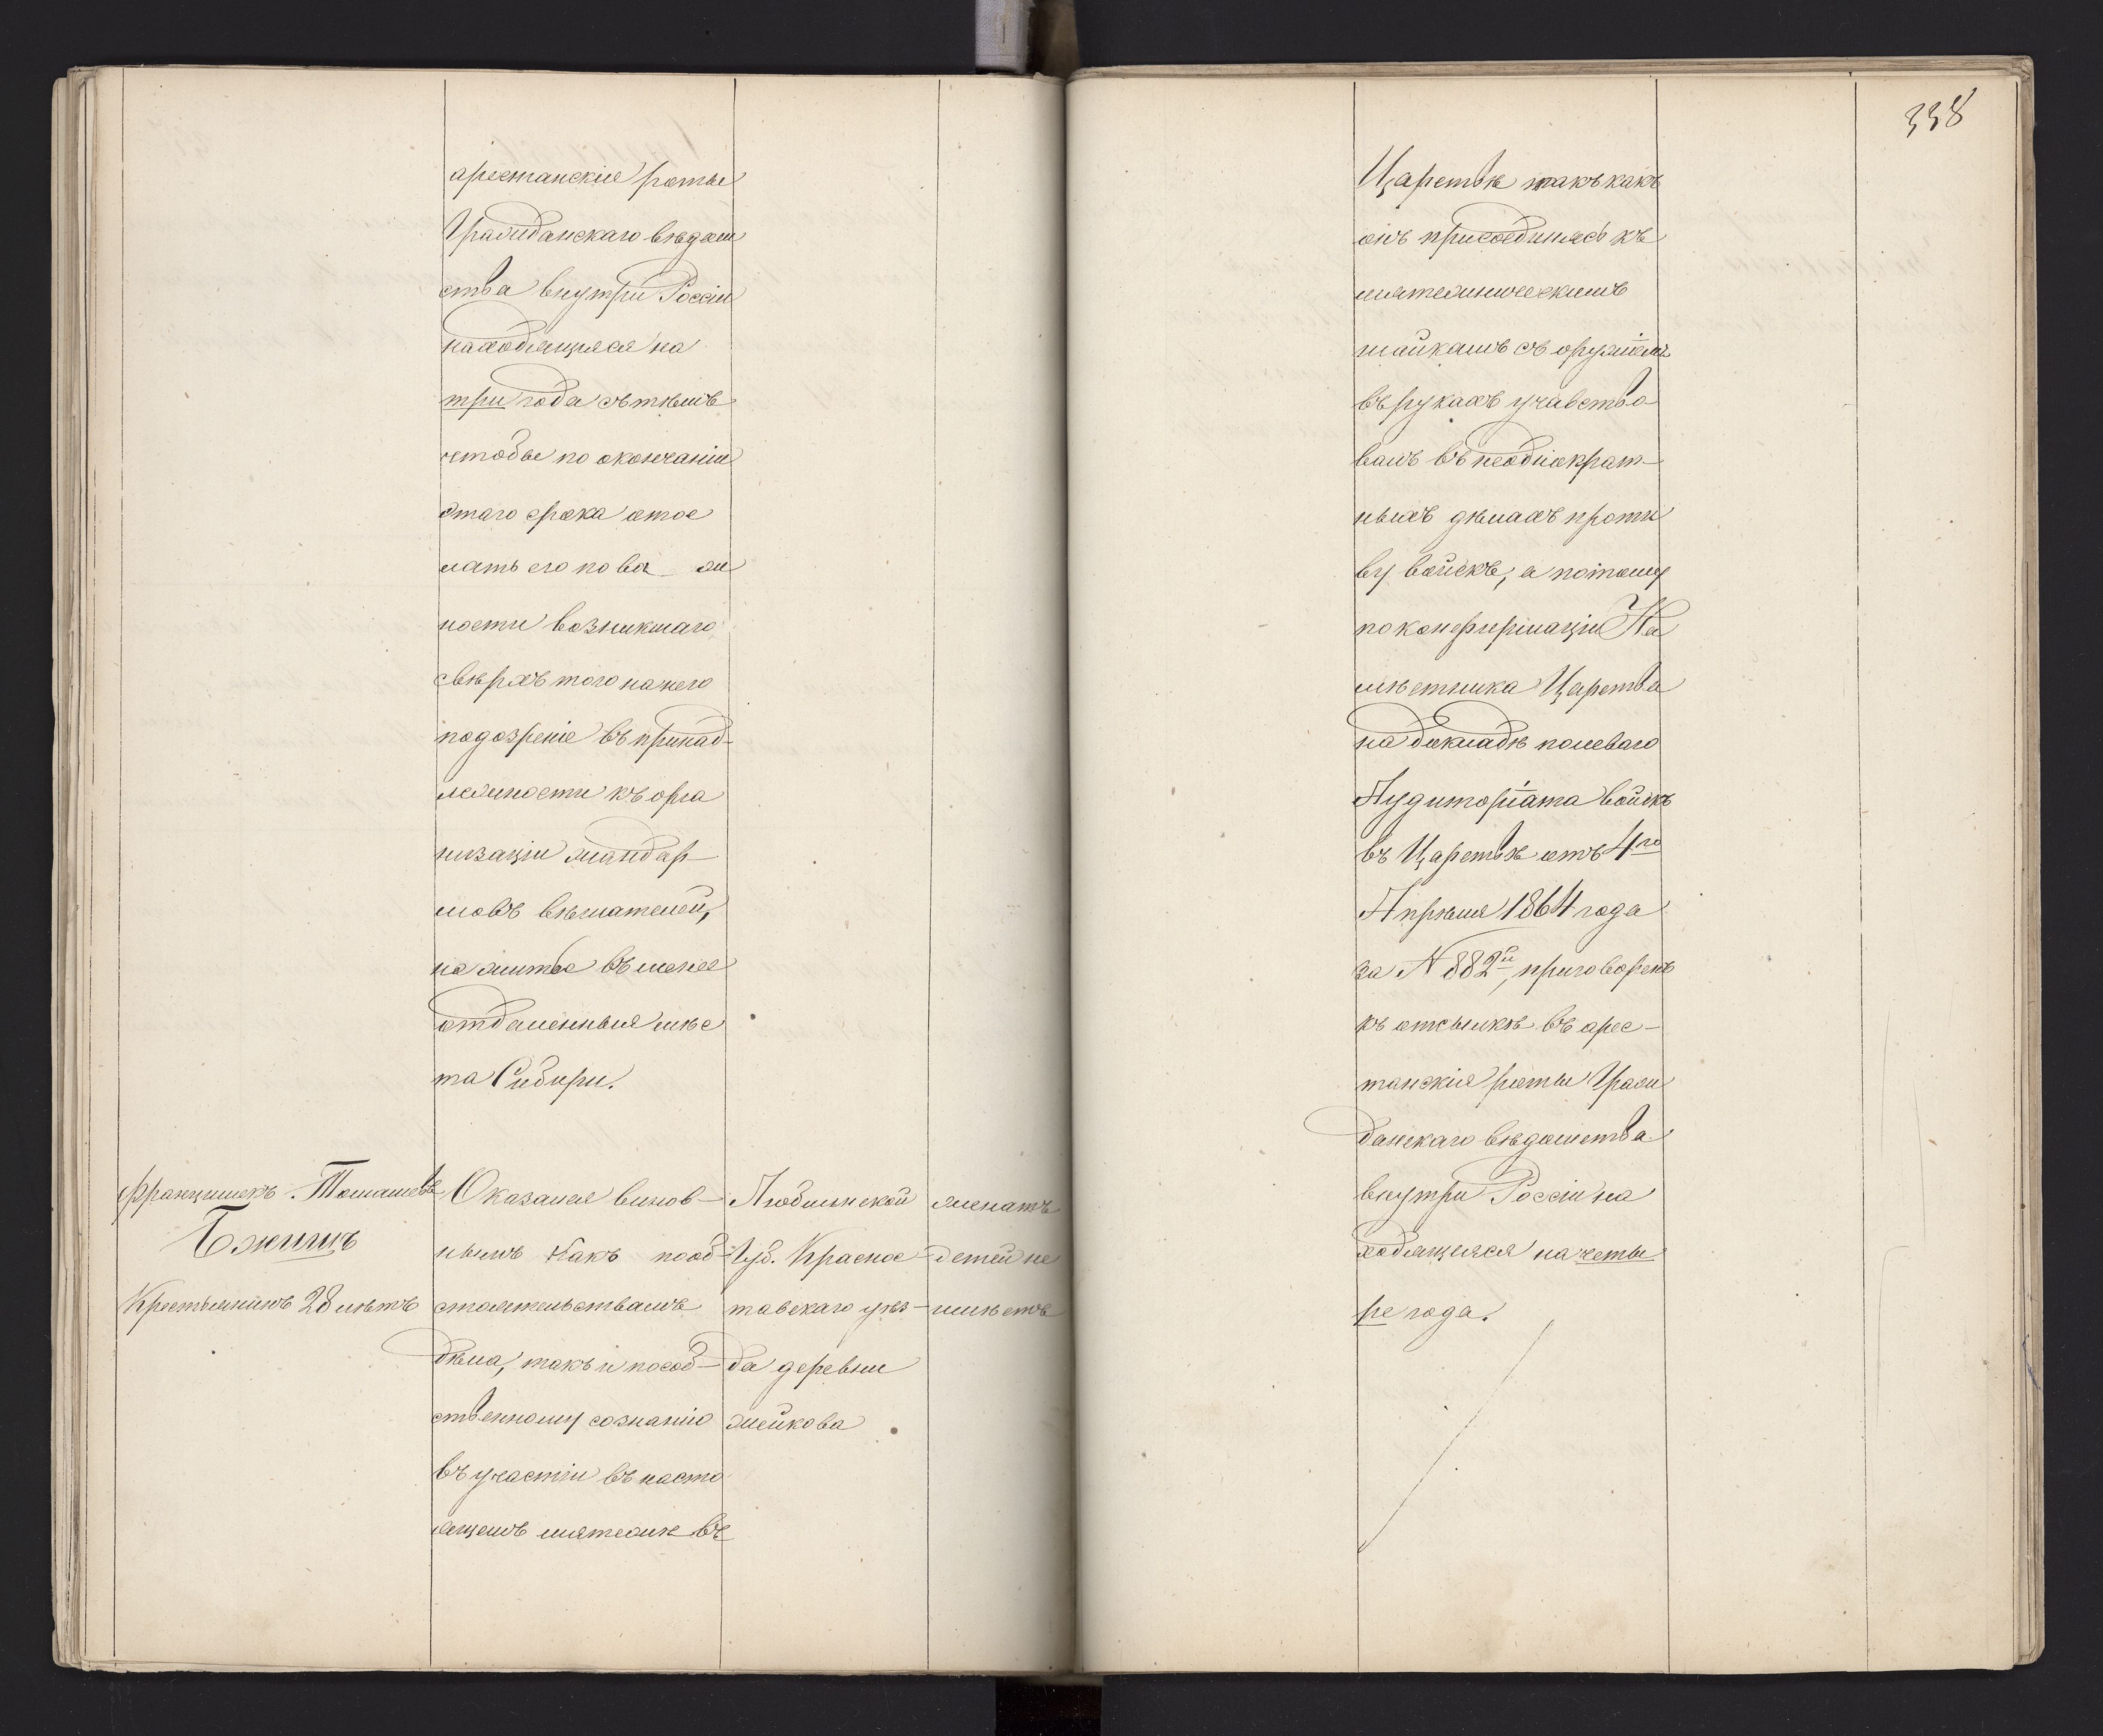 арестанскія роты
Гражданскаго вѣдом
ства внутри Россіи
находящіяся на
три года съ тѣмъ
чтобы по окончаніи
этаго срока отос
лать его по ва ж
ности возникшаго
свѣрхъ того на него
подозреніе въ принад-
лежности къ орга
низаціи жандар-
мовъ вѣшателей,
на житье въ менее
отдаленныя мѣс
та Сибири.
Францишекъ Томашевъ
Бжищъ
Крестьянинъ 28 лѣтъ
Оказался винов-
нымъ какъ пооб-
стоятельствамъ
дѣла, такъ и пособ-
ственному сознанію
въ участіи въ насто
ящемъ мятежи въ
Люблинской
Губ. Краснос-
тавскаго уѣз-
да деревни
жейкова
женатъ
детей не
имѣетъ
338
Царствѣ такъ какъ
онъ присоединясь къ
мятежническимъ
шайкамъ съ оружіемъ
въ рукахъ учавство
валъ въ неоднократ-
ныхъ дѣлахъ проти
ву войскъ, а потому
по конфирмаціи На
мѣстника Царства
на докладѣ полеваго
Аудиторіата войскъ
въ Царствѣ отъ 4го
Апрѣля 1864 года
за N 882м, приговоренъ
къ отсылкѣ въ арес-
танскія роты Граж
данскаго вѣдомства
внутри Россіи на
ходящіяся на четы
ре года.